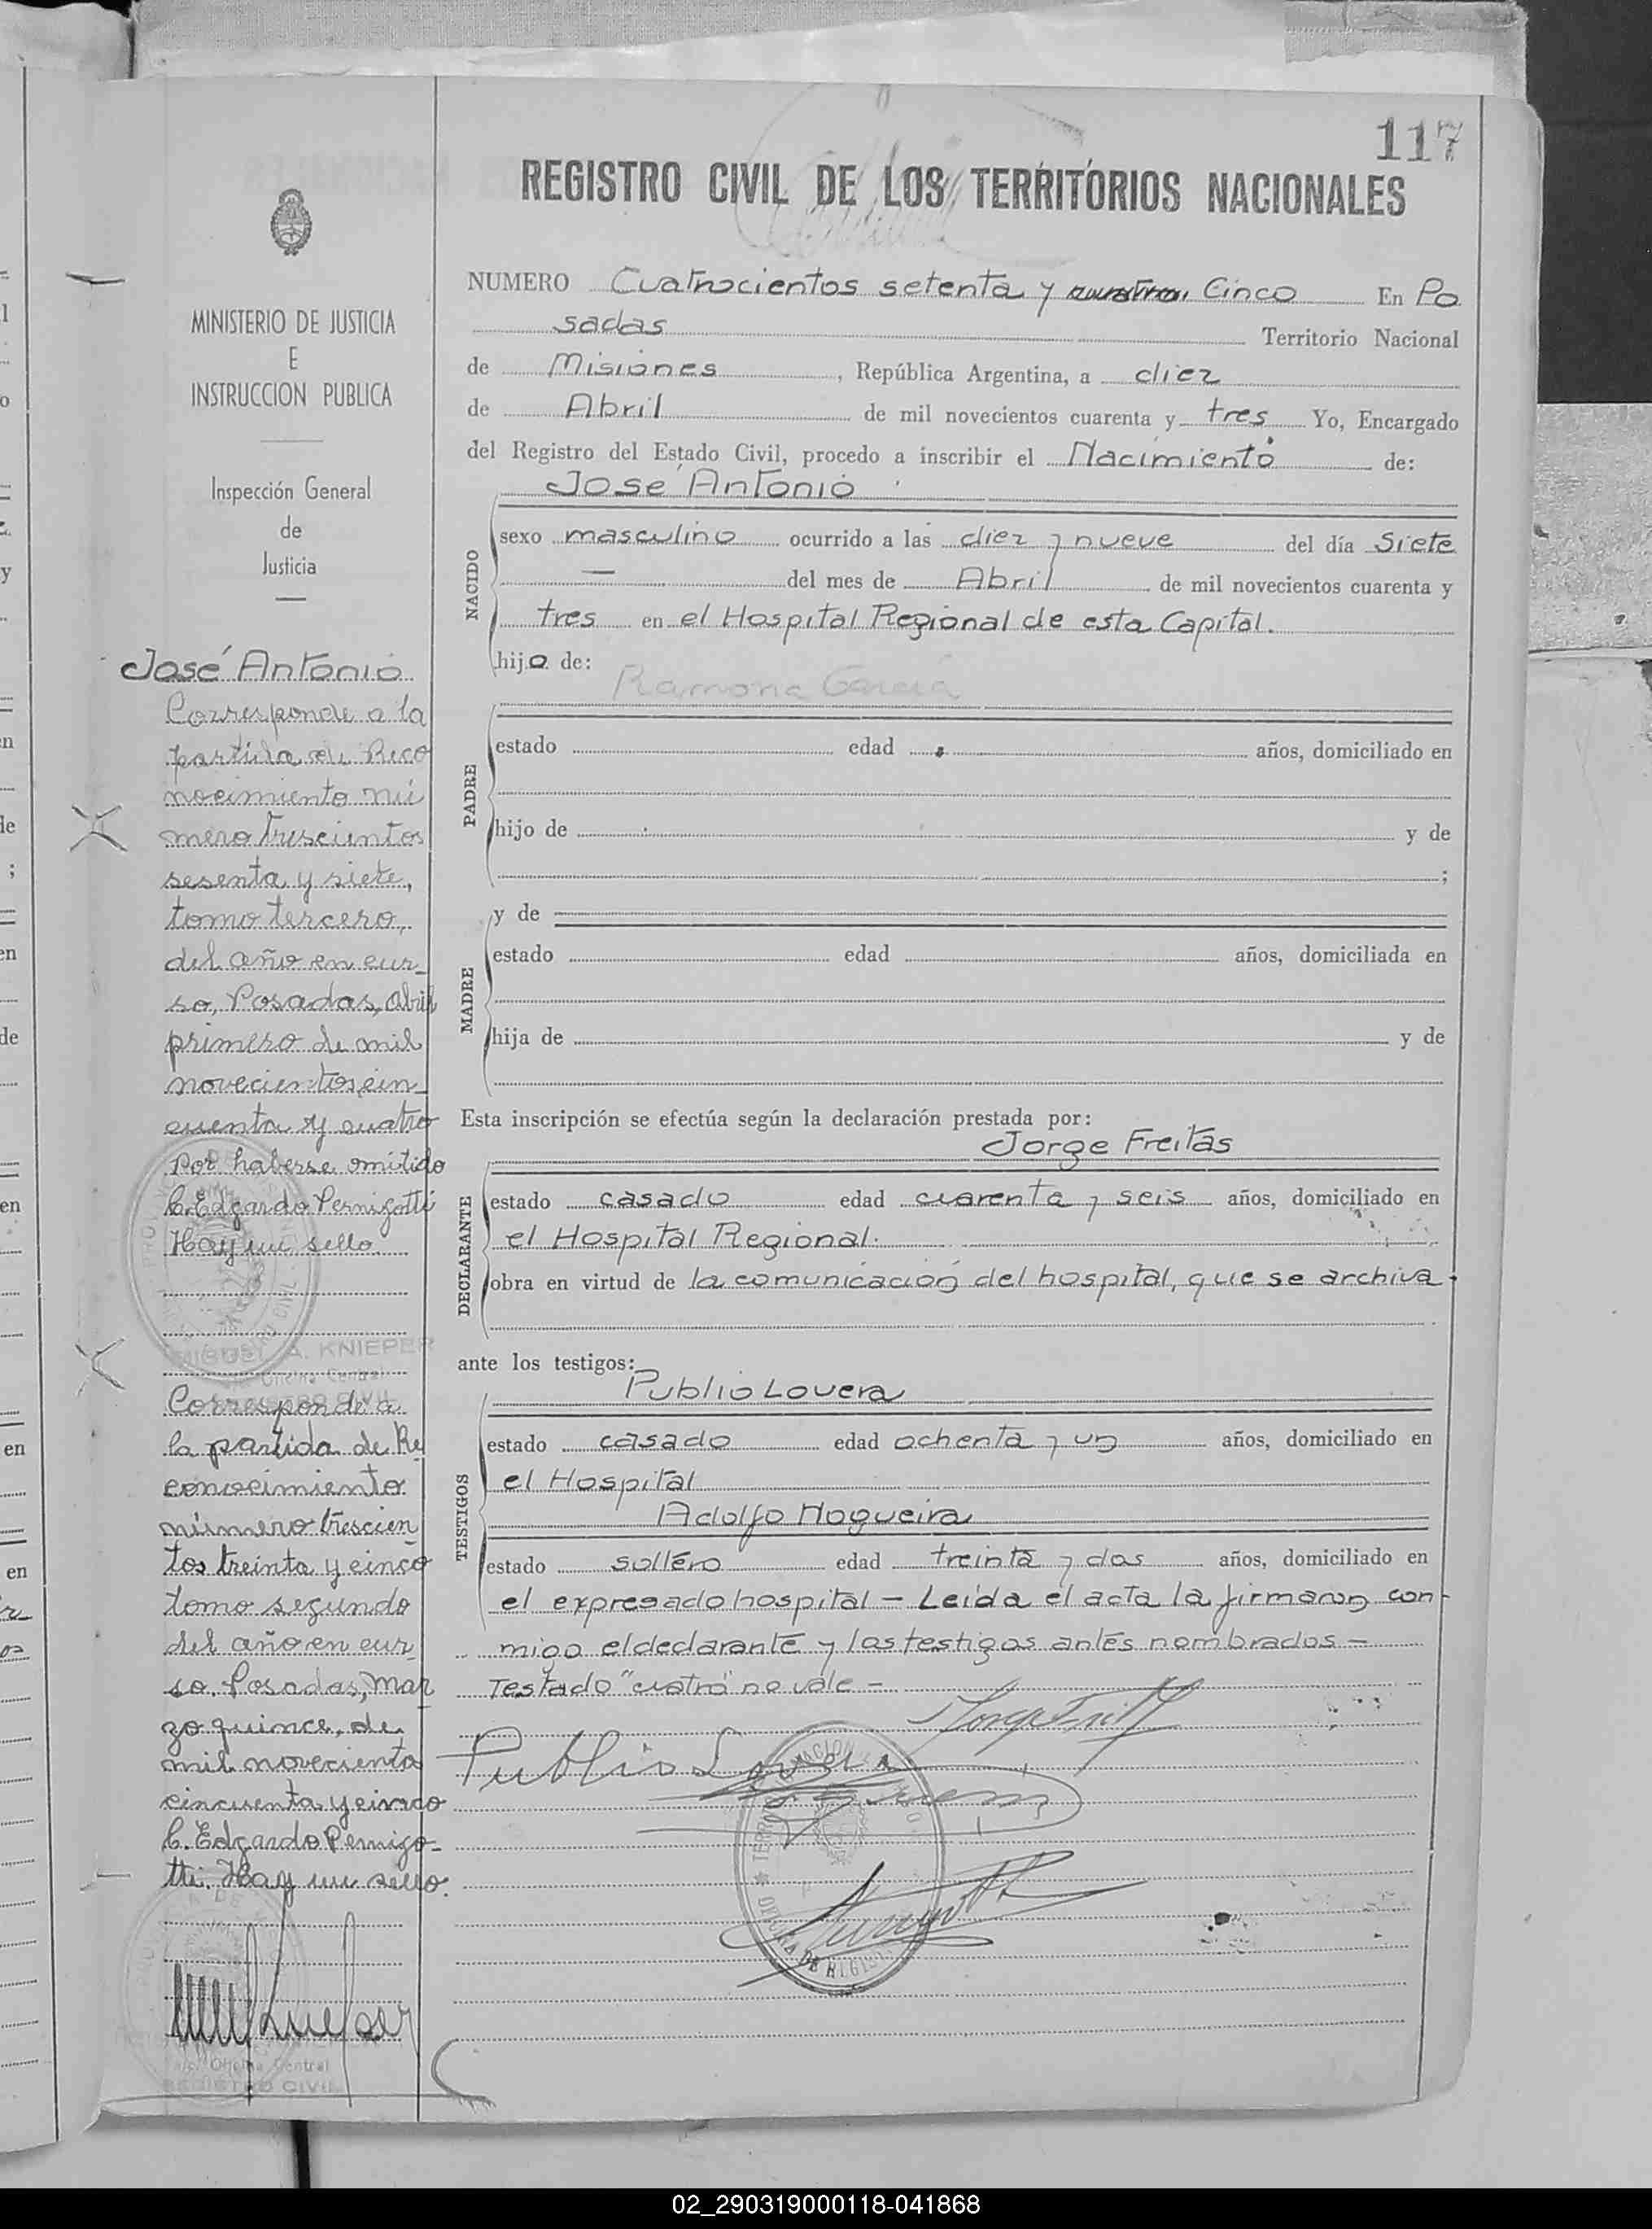 117
REGISTRO CIVIL DE LOS TERRITORIOS NACIONALES
MINISTERIO DE JUSTICIA
E
INSTRUCCION PUBLICA
Inspección General
de
Justicia
José Antonio
Corresponde a la
partida de Reco
nocimiento nú
mero trescientos
sesenta y siete,
tomo tercero,
del año en cur
so, Posadas, abril
primero de mil
novecientos cin
cuenta y cuatro
Por haberse omitido
C. Edgardo Pernigotti
Hay un sello
MIGUEL A. KNIEPER
Oficina Central
REGISTRO CIVIL
Corresponde a
la partida de Re
conocimiento
número trescien
tos treinta y cinco
tomo segundo
del año en cur
so, Posadas, Mar
zo quince, de
mil novecientos
cincuenta y cinco
C. Edgardo Pernigo-
tti. Hay un sello.
Oficina Central
REGISTRO CIVIL
NUMERO Cuatrocientos setenta y cuatro Cinco En Po
sadas Territorio Nacional
de Misiones, República Argentina, a diez
de Abril de mil novecientos cuarenta y tres Yo, Encargado
del Registro del Estado Civil, procedo a inscribir el Nacimiento de:
José Antonio
NACIDO
sexo masculino ocurrido a las diez y nueve del día Siete
— del mes de Abril de mil novecientos cuarenta y
tres en el Hospital Regional de esta Capital.
hijo de:
Ramona García
PADRE
estado edad años, domiciliado en
hijo de y de
;
y de
MADRE
estado edad años, domiciliada en
hija de y de
Esta inscripción se efectúa según la declaración prestada por:
Jorge Freitas
DECLARANTE
estado casado edad cuarenta y seis años, domiciliado en
el Hospital Regional.
obra en virtud de la comunicación del hospital, que se archiva.
ante los testigos:
Publio Lovera
TESTIGOS
estado casado edad ochenta y un años, domiciliado en
el Hospital
Adolfo Nogueira
estado soltéro edad treinta y dos años, domiciliado en
el expresado hospital — Leída el acta la firmaron con
migo el declarante y los testigos antes nombrados —
Testado "cuatro" no vale —
Publio Lovera
02_290319000118-041868